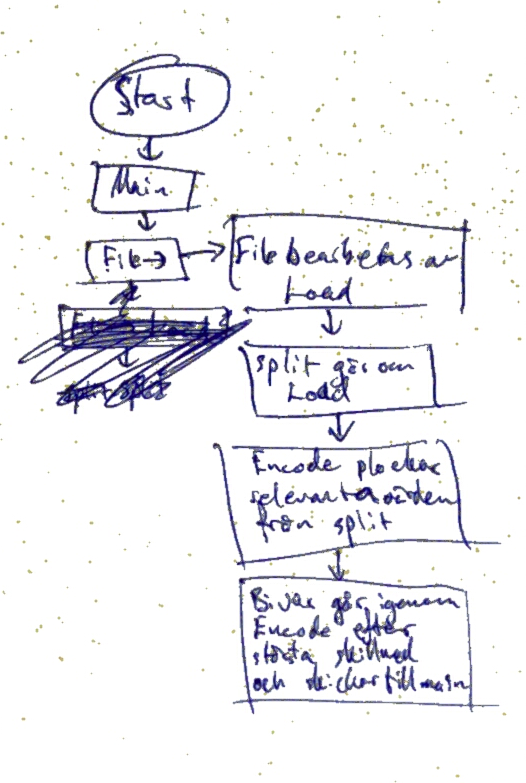 Start
Main
File →
File bearbetas av
Load
split gör om
Load
Encode plockar
relevanta värden
från split
går igenom
Encode efter
största skillnad
och skickar till main